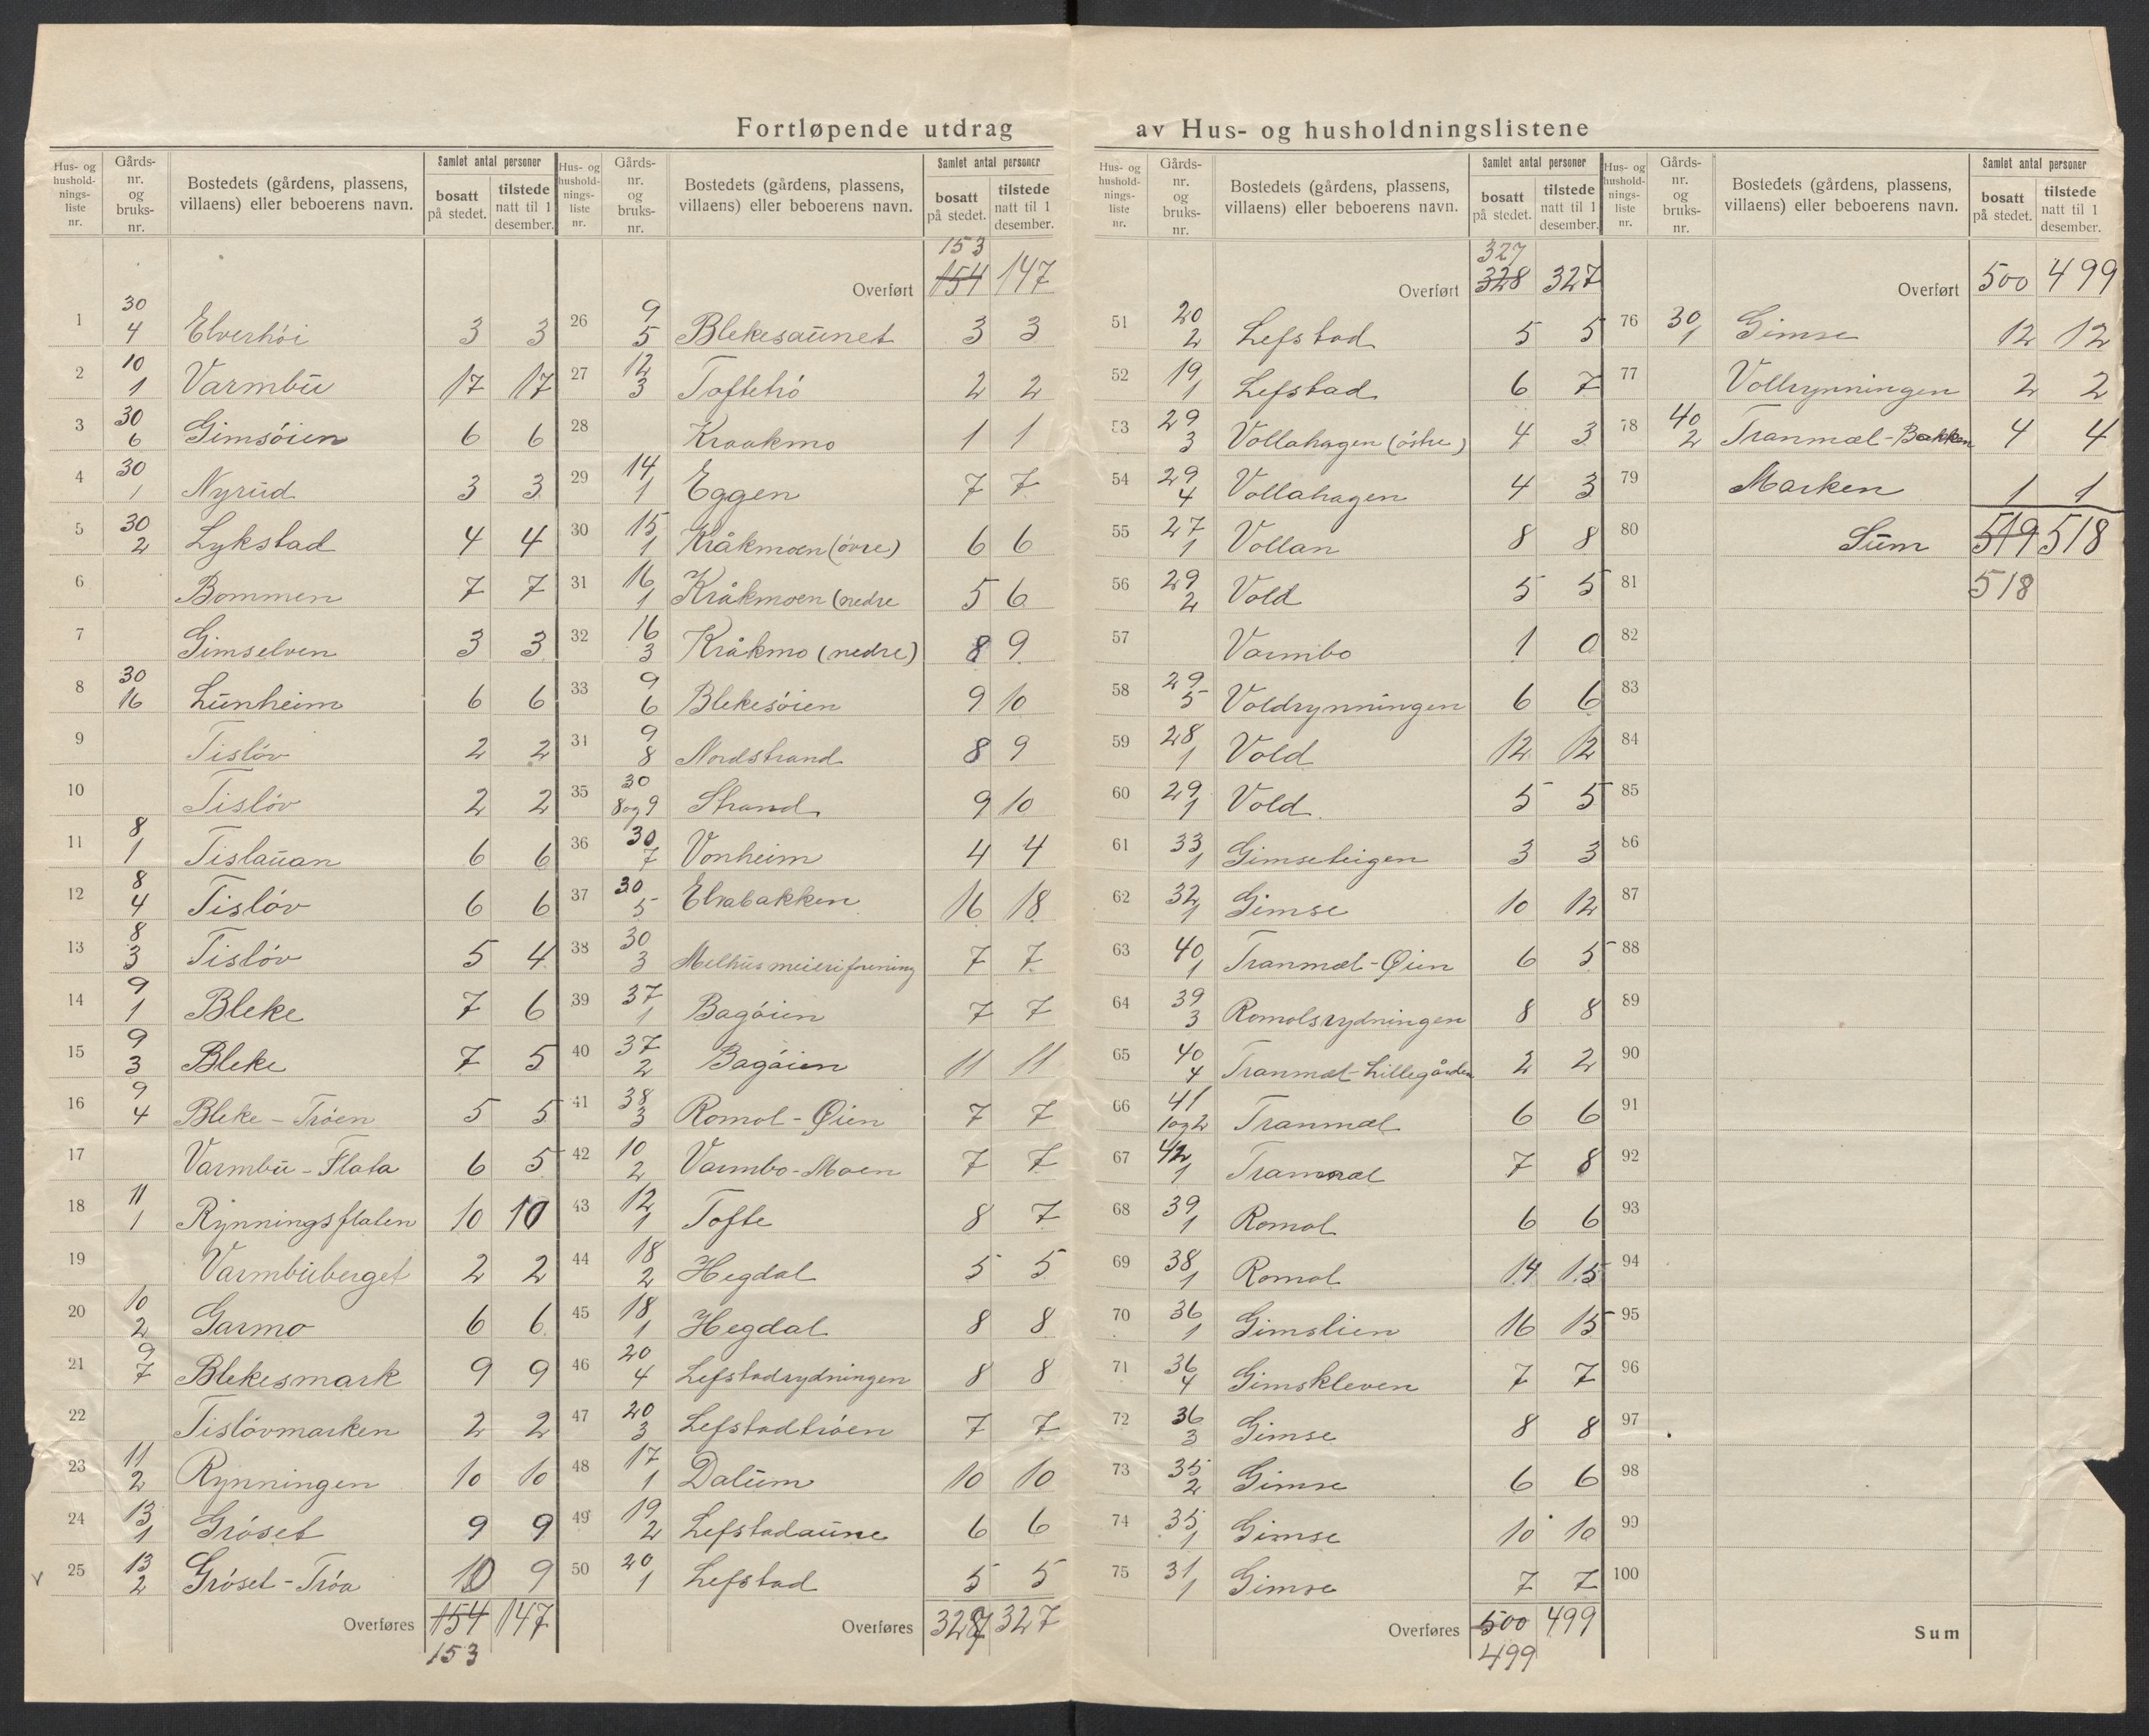 Fortløpende utdrag av Hus- og husholdningslistene
Hus- og husholdnings-liste nr. | Gårds-nr. og bruks-nr. | Bostedets (gårdens, plassens, villaens) eller beboerens navn. | Samlet antal personer | bosatt på stedet. | tilstede natt til 1 desember.
1 30 4 Elverhöi 3 3
2 10 1 Varmbu 17 17
3 30 6 Gimsöien 6 6
4 30 1 Nyrud 3 3
5 30 2 Lykstad 4 4
6 Bommen 7 7
7 Gimselven 3 3
8 30 16 Lunheim 6 6
9 Tislöv 2 2
10 Tislöv 2 2
11 8 1 Tislauan 6 6
12 8 4 Tislöv 6 6
13 8 3 Tislöv 5 4
14 9 1 Bleke 7 6
15 9 3 Bleke 7 5
16 9 4 Bleke - Tröen 5 5
17 Varmbu - Flata 6 5
18 11 1 Rynningsflaten 10 10
19 Varmbuberget 2 2
20 10 2 Garmo 6 6
21 9 7 Blekesmark 9 9
22 Tislövmarken 2 2
23 11 2 Rynningen 10 10
24 13 1 Gröset 9 9
25 13 2 Gröset - Tröa 10 9
Overføres 154 147
153
Hus- og husholdnings-liste nr. | Gårds-nr. og bruks-nr. | Bostedets (gårdens, plassens, villaens) eller beboerens navn. | Samlet antal personer | bosatt på stedet. | tilstede natt til 1 desember.
153
Overført 154 147
26 9 5 Blekesaunet 3 3
27 12 3 Toftetrö 2 2
28 Kraakmo 1 1
29 14 1 Eggen 7 7
30 15 1 Kråkmoen (övre) 6 6
31 16 1 Kråkmoen (nedre 5 6
32 16 3 Kråkmo (nedre) 8 9
33 9 6 Blekesöien 9 10
34 9 8 Nordstrand 8 9
35 30 8 og 9 Strand 9 10
36 30 7 Vonheim 4 4
37 30 5 Elvabakken 16 18
38 30 3 Melhus meieriforening 7 7
39 37 1 Bagöien 7 7
40 37 2 Bagöien 11 11
41 38 3 Romol - Øien 7 7
42 10 2 Varmbo - Moen 7 7
43 12 1 Tofte 8 7
44 18 2 Hegdal 5 5
45 18 1 Hegdal 8 8
46 20 4 Lefstadrydningen 8 8
47 20 3 Lefstadtröen 7 7
48 17 1 Dalum 10 10
49 19 2 Lefstadaune 6 6
50 20 1 Lefstad 5 5
Overføres 327 327
Hus- og husholdnings-liste nr. | Gårds-nr. og bruks-nr. | Bostedets (gårdens, plassens, villaens) eller beboerens navn. | Samlet antal personer | bosatt på stedet. | tilstede natt til 1 desember.
327
Overført 328 327
51 20 2 Lefstad 5 5
52 19 1 Lefstad 6 7
53 29 3 Vollahagen (östre) 4 3
54 29 4 Vollahagen 4 3
55 27 1 Vollan 8 8
56 29 2 Vold 5 5
57 Varmbo 1 0
58 29 5 Voldrynningen 6 6
59 28 1 Vold 12 12
60 29 1 Vold 5 5
61 33 1 Gimseteigen 3 3
62 32 1 Gimse 10 12
63 40 1 Tranmæl - Øien 6 5
64 39 3 Romolsrydningen 8 8
65 40 4 Tranmæl - Lillegården 2 2
66 41 1 og 2 Tranmæl 6 6
67 42 1 Tranmæl 7 8
68 39 1 Romol 6 6
69 38 1 Romol 14 15
70 36 1 Gimslien 16 15
71 36 4 Gimskleven 7 7
72 36 3 Gimse 8 8
73 35 2 Gimse 6 6
74 35 1 Gimse 10 10
75 31 1 Gimse 7 7
Overføres 500 499
499
Hus- og husholdnings-liste nr. | Gårds-nr. og bruks-nr. | Bostedets (gårdens, plassens, villaens) eller beboerens navn. | Samlet antal personer | bosatt på stedet. | tilstede natt til 1 desember.
Overført 500 499
76 30 1 Gimse 12 12
77 Vollrynningen 2 2
78 40 2 Tranmæl - Bakken 4 4
79 Marken 1 1
80 Sum 519 518
81 518
82
83
84
85
86
87
88
89
90
91
92
93
94
95
96
97
98
99
100
Sum